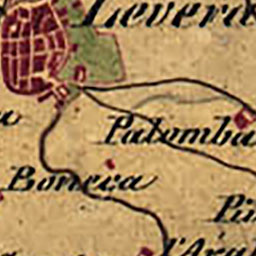 Levera
a
Palomba
Boneca
Pi
l'Ara